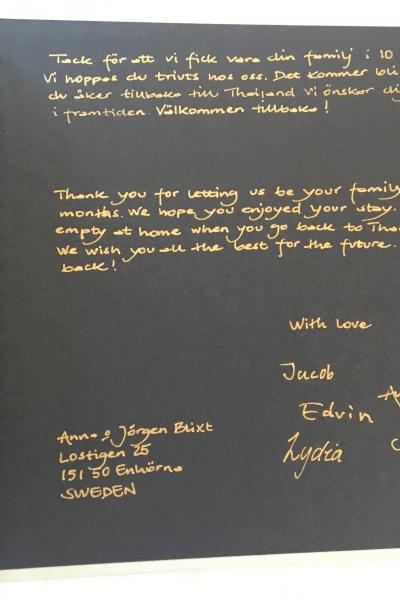 Tack för att vi fick vara din familj i 10
Vi hoppas du trivts hos oss. Det kommer bli
du åker tillbaka till Thailand Vi önskar
i framtiden. Välkommen tillbaka!
Thank you for letting us be your family
months. We hope you enjoyed your stay.
empty at home when you go back to
We wish you all the best for the future.
back!
With Love
Jacob
Edvin
Lydia
Anna o Jörgen Blixt
Lostigen 25
151 50 Enhörna
SWEDEN